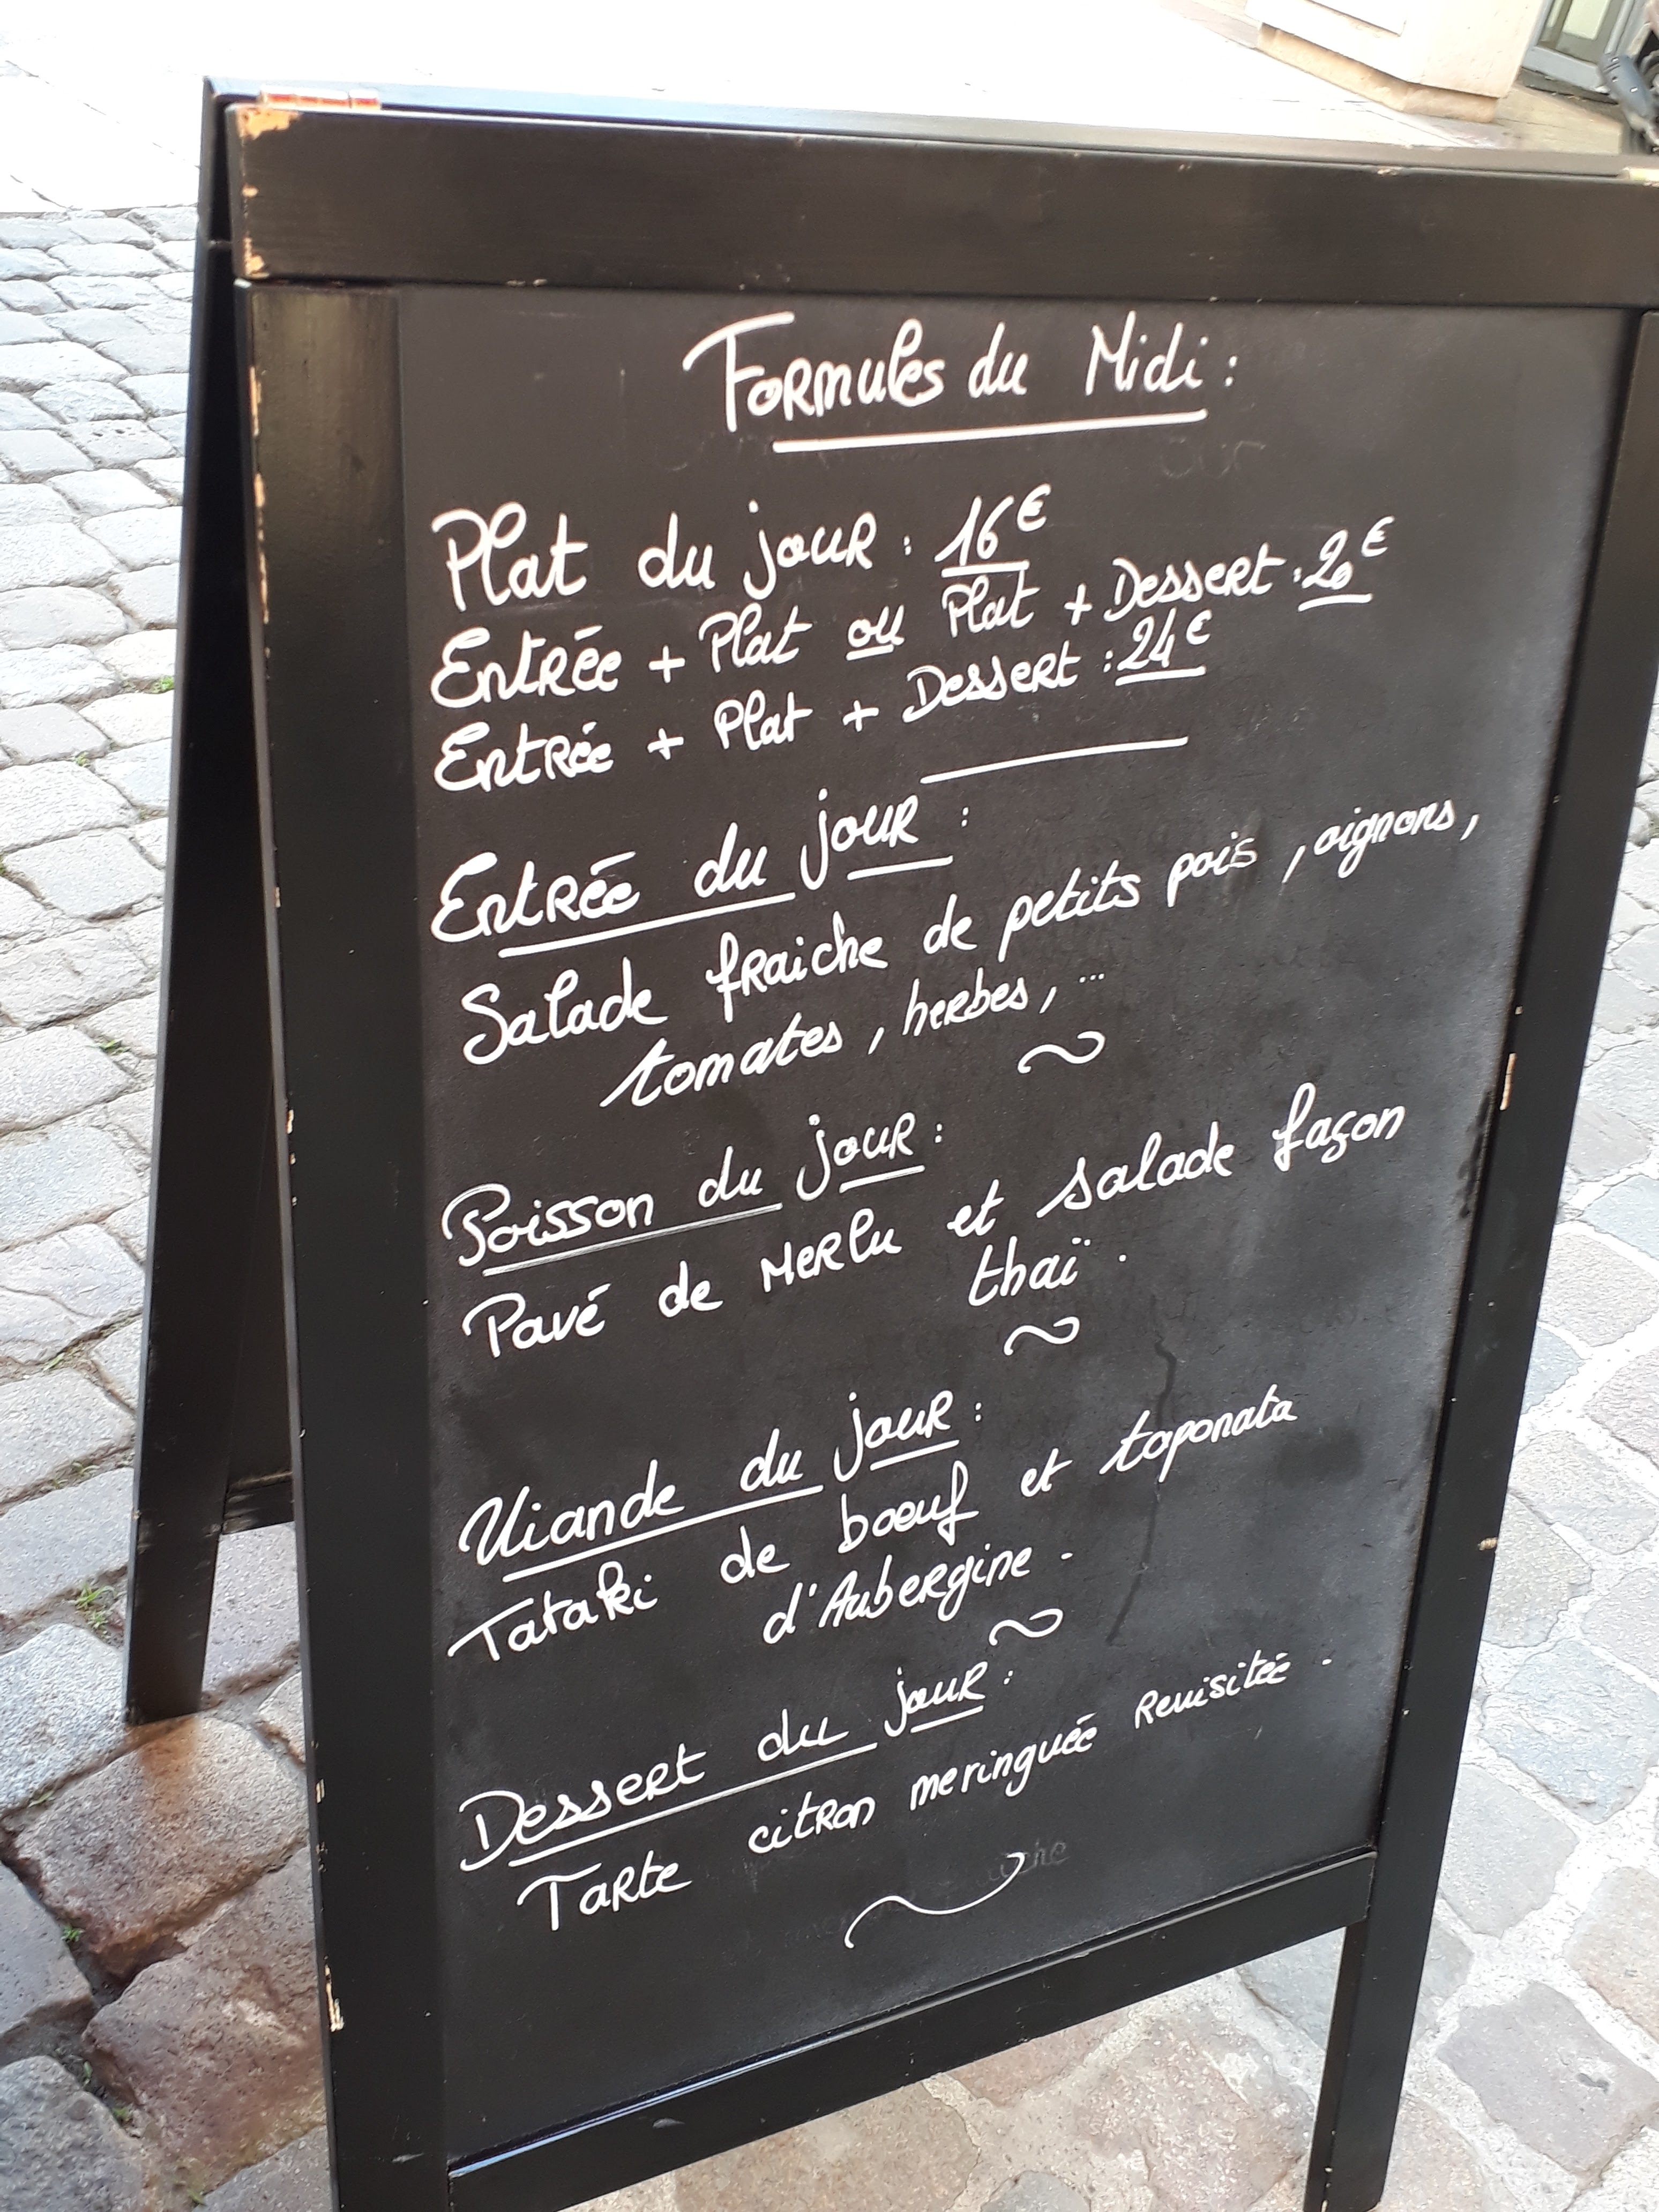 Formules du Midi :
Plat du jour : 16€
Entrée + Plat ou Plat + Dessert : 20€
Entrée + Plat + Dessert : 24€
Entrée du jour :
Salade fraiche de petits pois , oignons ,
tomates , herbes , ...
Poisson du jour :
Pavé de Merlu et salade façon
thaï .
Viande du jour :
Tataki de boeuf et taponata
d'Aubergine .
Dessert du jour :
Tarte citron meringuée Revisitée .